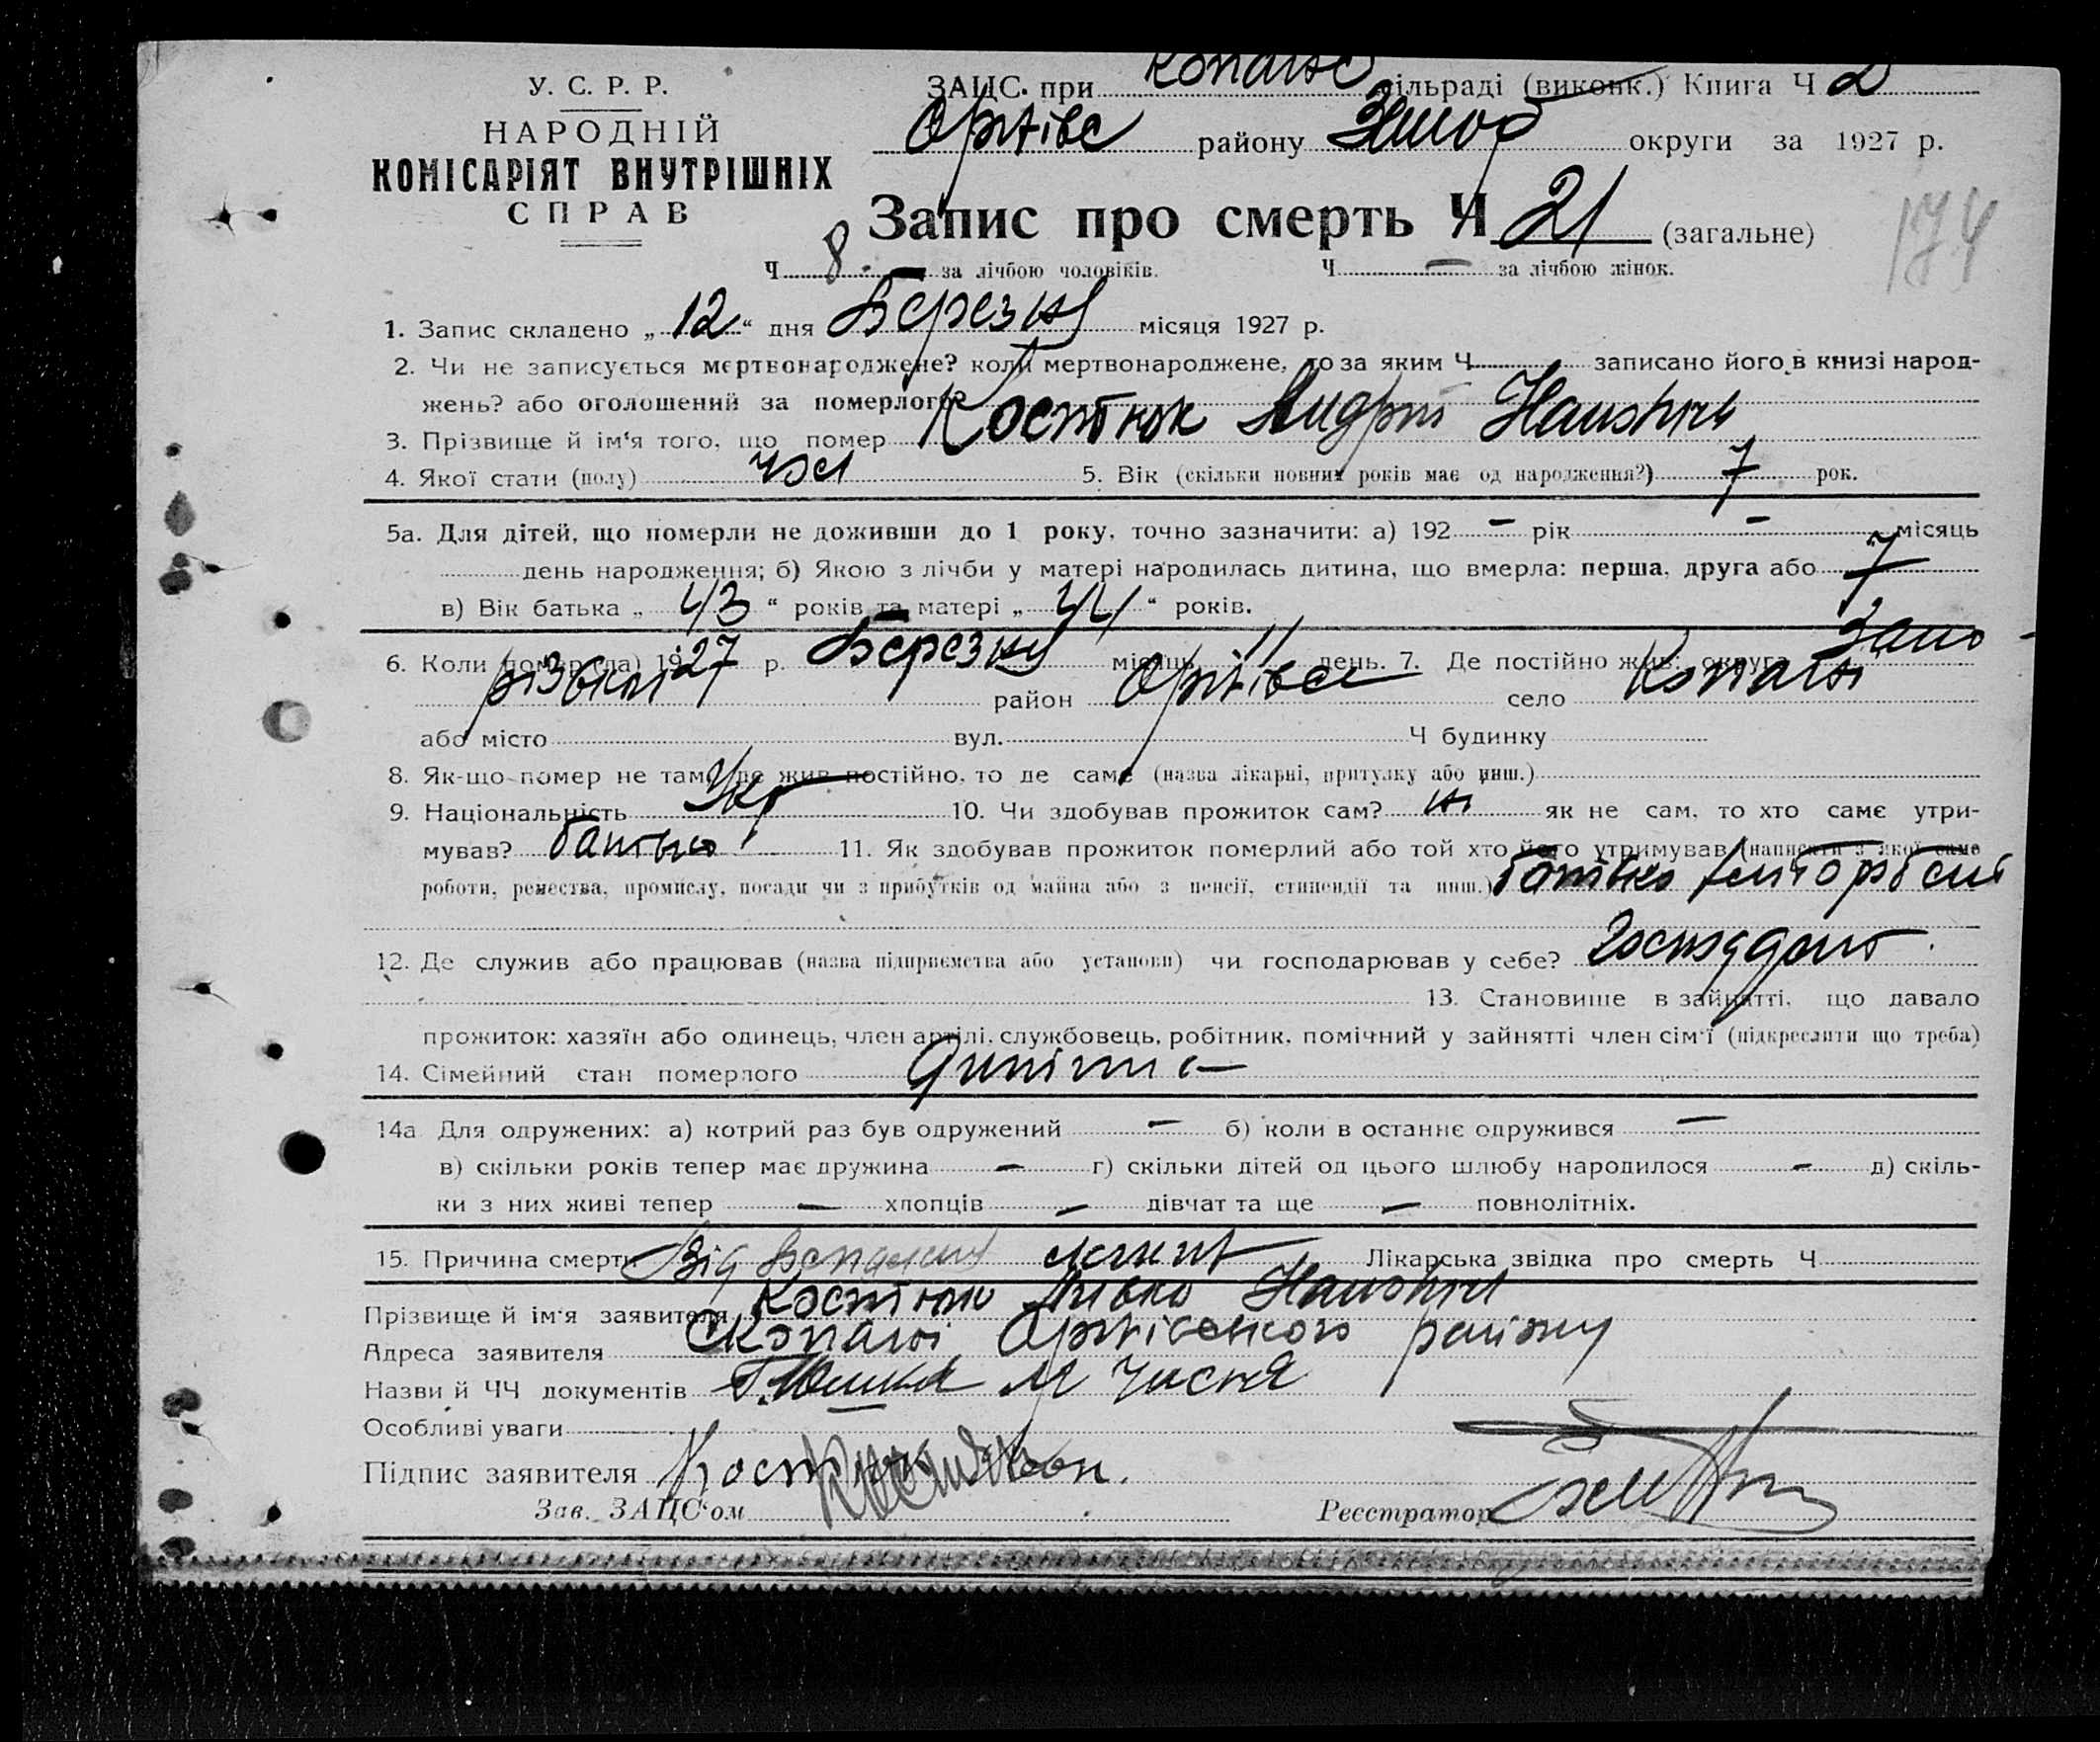 У. С. Р. Р.
НАРОДНІЙ
КОМІСАРІЯТ ВНУТРІШНІХ
СПРАВ
ЗАЦС. при сільраді (виконк.) Книга Ч 2
району округи за 1927 р.
Запис про смерть Ч 21 (загальне)
174
Ч 8. — за лічбою чоловіків. Ч — за лічбою жінок.
1. Запис складено „ 12 “ дня Березня місяця 1927 р.
2. Чи не записується мертвонароджене? коли мертвонароджене, то за яким Ч записано його в книзі народ-
жень? або оголошений за померлого?
3. Прізвище й ім‘я того, що помер Костюк Андрій
4. Якої стати (полу) чол 5. Вік (скільки повних років має од народження?) 7 рок.
5а. Для дітей, що померли не доживши до 1 року, точно зазначити: а) 192 – рік – місяць
день народження; б) Якою з лічби у матері народилась дитина, що вмерла: перша, друга або 7
в) Вік батька „ 43 “ років та матері „ “ років.
6. Коли помер (ла) 1927 р. Березня місяць 11 день. 7. Де постійно жив: округа Запо-
різької район село Копані
або місто вул. Ч будинку
8. Як-що помер не там, де жив постійно, то де саме (назва лікарні, притулку або инш.)
9. Національність Укр 10. Чи здобував прожиток сам? ні як не сам, то хто саме утри-
мував? батько 11. Як здобував прожиток померлий або той хто його утримував (написати з якої саме
роботи, ремества, промислу, посади чи з прибутків од майна або з пенсії, стипендії та инш.) батько
12. Де служив або працював (назва підприємства або установи) чи господарював у себе?
13. Становище в зайнятті, що давало
прожиток: хазяїн або одинець, член артілі, службовець, робітник, помічний у зайнятті член сім‘ї (підкреслити що треба)
14. Сімейний стан померлого
14а Для одружених: а) котрий раз був одружений – б) коли в останнє одружився –
в) скільки років тепер має дружина – г) скільки дітей од цього шлюбу народилося – д) скіль-
ки з них живі тепер – хлопців – дівчат та ще – повнолітніх.
15. Причина смерти Від Лікарська звідка про смерть Ч
Прізвище й ім‘я заявителя Костюк
Адреса заявителя С Копані району
Назви й ЧЧ документів
Особливі уваги
Підпис заявителя
Зав. ЗАЦС‘ом Реєстратор